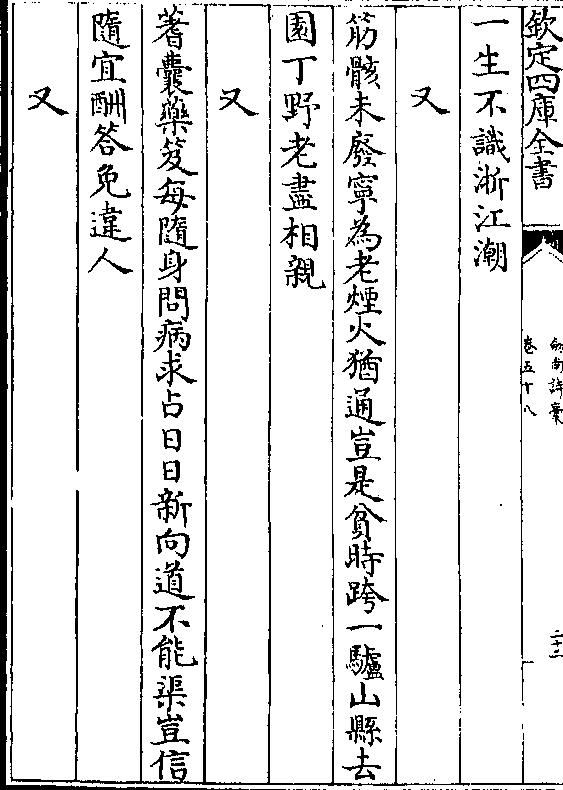 欽定四庫全書
劍南詩稾
卷五十八
二十二
一生不識浙江潮
又
筋骸未廢寧為老煙火猶通豈是貧時跨一驢山縣去
園丁野老盡相親
又
蓍囊藥笈每隨身問病求占日日新向道不能渠豈信
隨宜酬答免違人
又